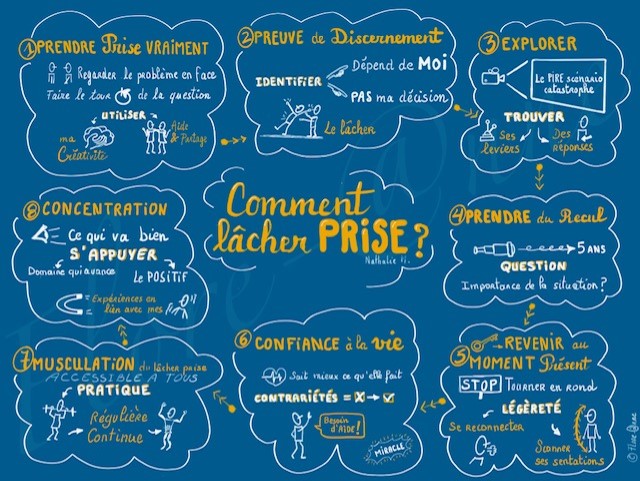 ① PRENDRE Prise VRAIMENT
Regarder le problème en face
Faire le tour de la question
UTILISER
ma Créativité
Aide & Partage
② PREUVE de Discernement
IDENTIFIER
Dépend de MOI
PAS ma décision
Le lâcher
③ EXPLORER
Le PIRE scénario
catastrophe
TROUVER
Ses leviers
Des réponses
Comment
lâcher PRISE ?
Nathalie H.
④ PRENDRE du Recul
5 ANS
QUESTION
Importance de la situation ?
⑤ REVENIR au
MOMENT Présent
STOP Tourner en rond
LÉGÈRETÉ
Se reconnecter
Scanner
ses sentations
⑥ CONFIANCE à la vie
Sait mieux ce qu'elle fait
CONTRARIÉTÉS = X → ✓
Besoin
d'AIDE !
MIRACLE
⑦ MUSCULATION du lâcher prise
ACCESSIBLE A TOUS
PRATIQUE
Régulière
Continue
⑧ CONCENTRATION
Ce qui va bien
S'APPUYER
Domaine qui avance
Le POSITIF
Expériences en
lien avec mes